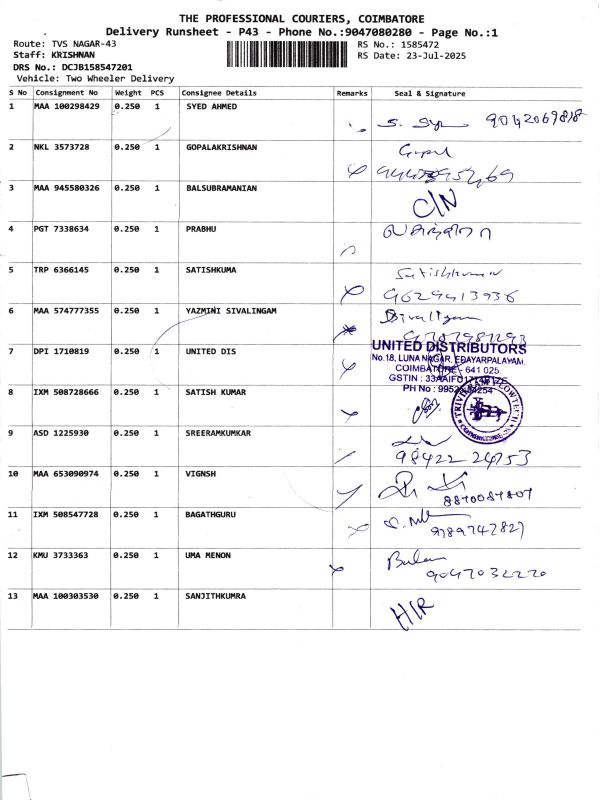 THE PROFESSIONAL COURIERS, COIMBATORE
Delivery Runsheet - P43 - Phone No.:9047080280 - Page No.:1
Route: TVS NAGAR-43
RS No.: 1585472
Staff: KRISHNAN
RS Date: 23-Jul-2025
DRS No.: DCJB158547201
Vehicle: Two Wheeler Delivery
S No Consignment No Weight PCS Consignee Details Remarks Seal & Signature
1 MAA 100298429 0.250 1 SYED AHMED 9042069818
2 NKL 3573728 0.250 1 GOPALAKRISHNAN
3 MAA 945580326 0.250 1 BALSUBRAMANIAN C/N
4 PGT 7338634 0.250 1 PRABHU
5 TRP 6366145 0.250 1 SATISHKUMA Satishkumar
9629413936
6 MAA 574777355 0.250 1 YAZMINI SIVALINGAM Sivaligam
7 DPI 1710819 0.250 1 UNITED DIS UNITED DISTRIBUTORS
No.18, LUNA NAGAR, EDAYARPALAYAM,
COIMBATORE - 641 025.
GSTIN :
PH No :
8 IXM 508728666 0.250 1 SATISH KUMAR
9 ASD 1225930 0.250 1 SREERAMKUMKAR
98422 24753
10 MAA 653090974 0.250 1 VIGNSH
8870087807
11 IXM 508547728 0.250 1 BAGATHGURU
9789747827
12 KMU 3733363 0.250 1 UMA MENON
9047032220
13 MAA 100303530 0.250 1 SANJITHKUMRA HIR